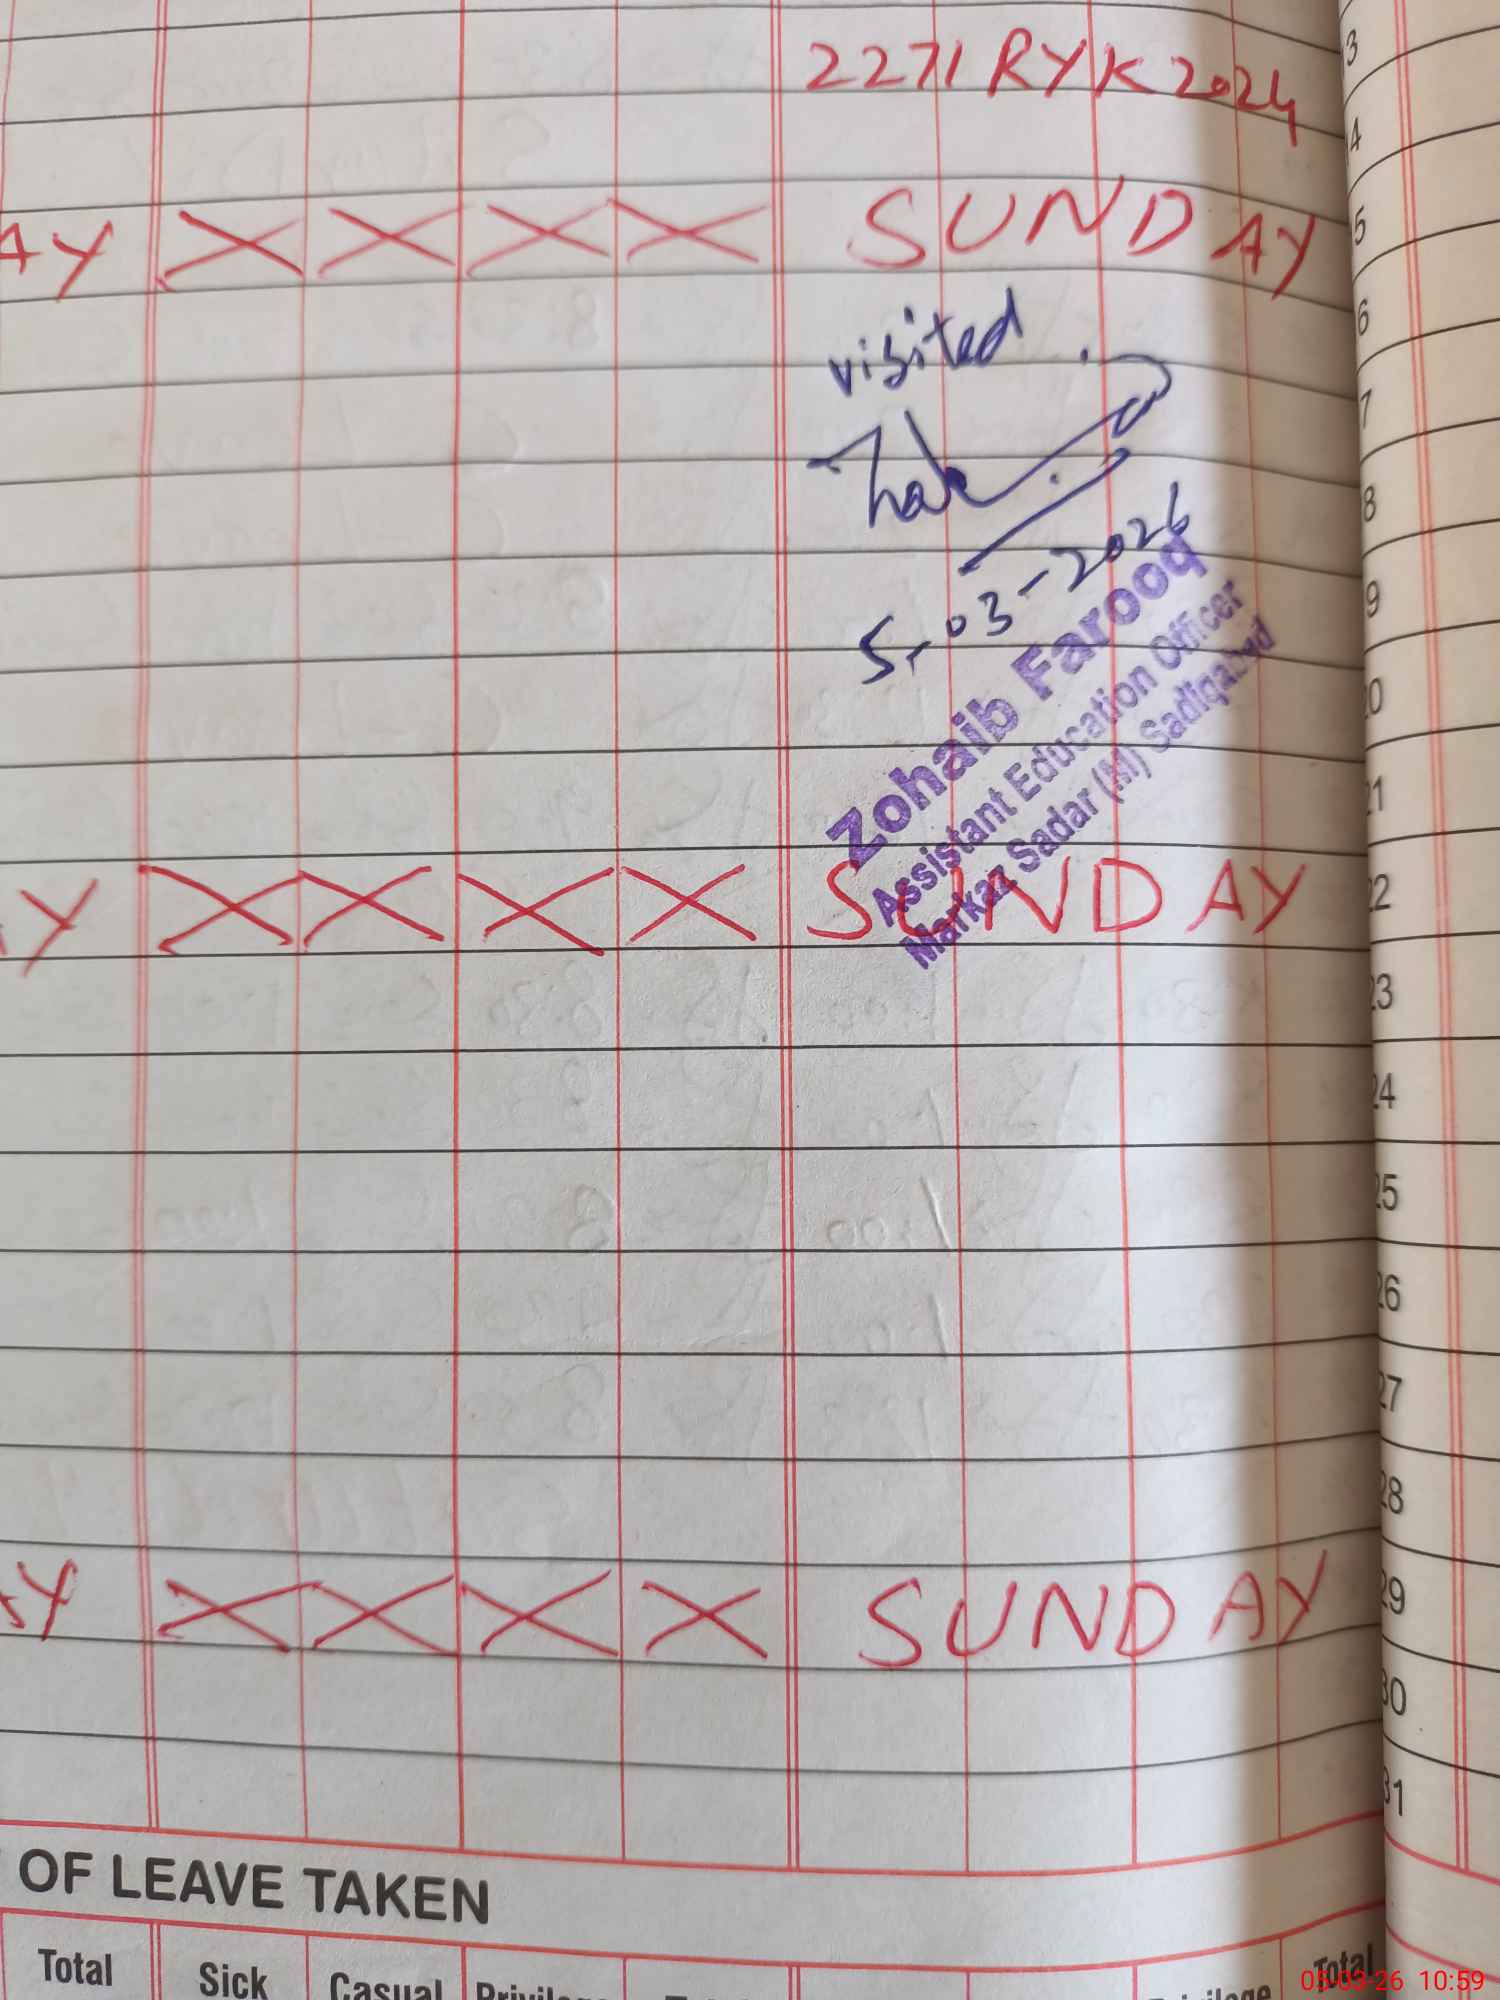 2271 RYK 2024
13
14
AY X X X X SUNDAY 15
16
visited
17
18
5-03-2026
19
Zohaib Farooq
Assistant Education Officer
Markaz Sadar (M) Sadiqabad
20
21
AY X X X X SUNDAY 22
23
24
25
26
27
28
AY X X X X SUNDAY 29
30
31
OF LEAVE TAKEN
Total Sick Casual Total
05-03-26 10:59